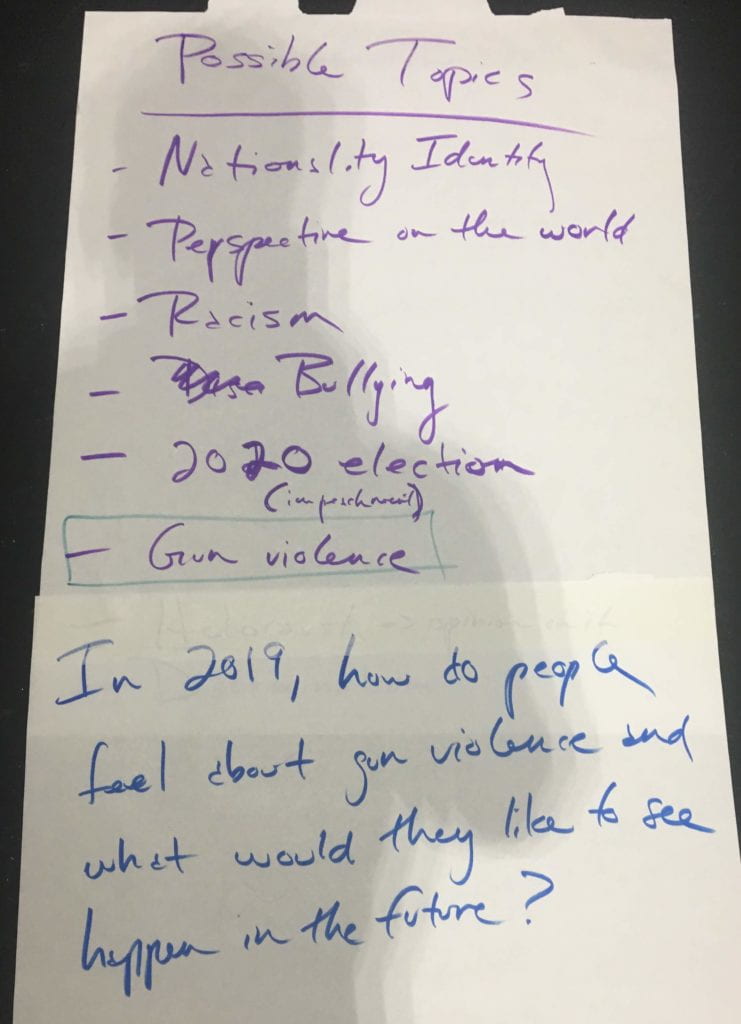 Possible Topics
- Nationality Identity
- Perspective on the world
- Racism
- Bullying
- 2020 election
(impeachment)
- Gun violence
In 2019, how do people
feel about gun violence and
what would they like to see
happen in the future?